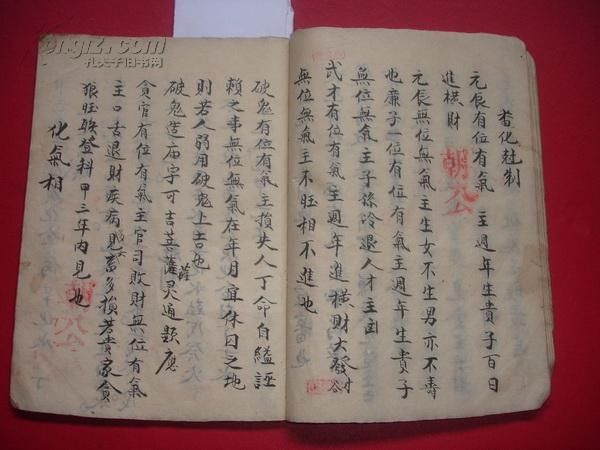 杳化尅制
元辰有位有氣　主週年生貴子百日
進横財
元長無位無氣主生女不生男亦不壽
也廉子一位有位有氣主週年生貴子
無位無氣主子孫冷退人才主
武才有位有氣主週年進横財大發
無位無氣主不旺相不進也
朝公
破鬼有位有氣主損失人丁命自縊誣
賴之事無位無氣在年月宜休囚之地
則若人弱用破鬼上吉也
破鬼造庙字可吉菩薩灵通題應
貪官有位有氣主官司敗財無位有氣
主口舌退財疾病見畜多損若貴家貪
狼旺聯登科甲三年内見也
化氣相
kongfz.com
孔夫子旧书网